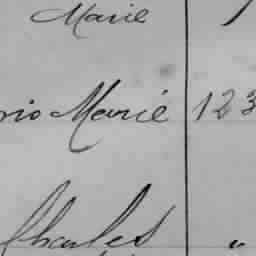 Marie 1
rio Marié 123
Charles "